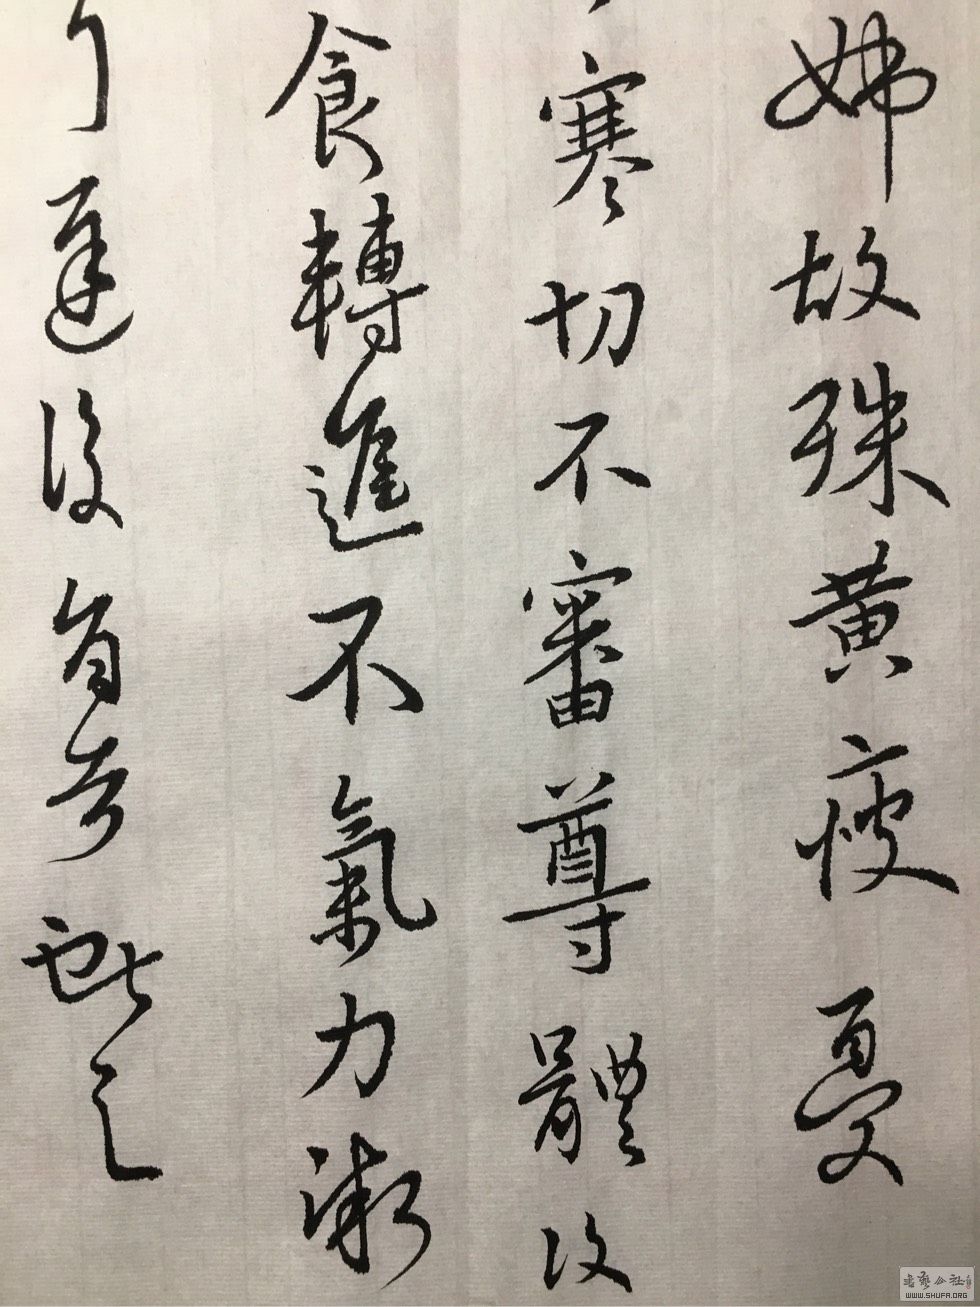 姊故殊黃瘦憂
寒切不審尊體復
食轉進不氣力漸
遲復告獻之
書藝公社
WWW.SHUFA.ORG